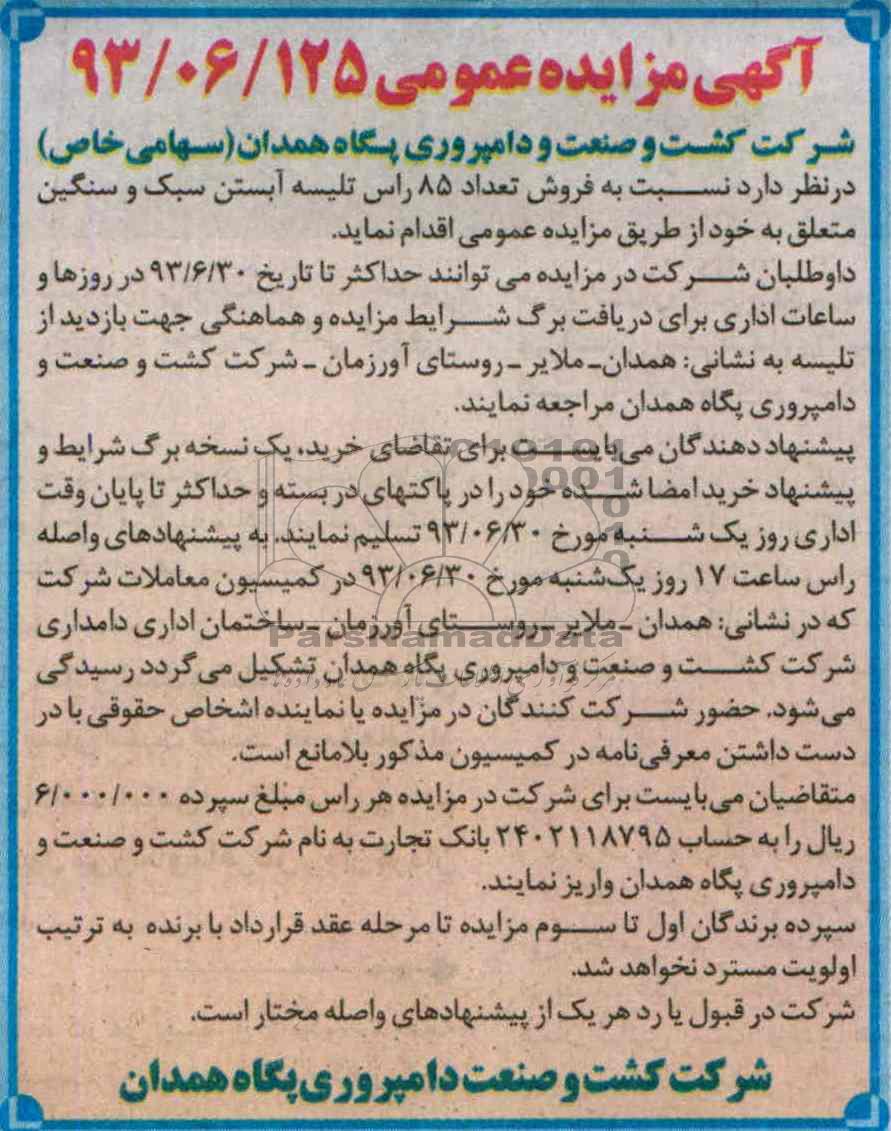 آگهی مزایده عمومی ۹۳/۰۶/۱۲۵
شرکت کشت و صنعت و دامپروری پگاه همدان (سهامی خاص)
درنظر دارد نسبت به فروش تعداد ۸۵ راس تلیسه آبستن سبک و سنگین
متعلق به خود از طریق مزایده عمومی اقدام نماید.
داوطلبان شرکت در مزایده می توانند حداکثر تا تاریخ ۹۳/۶/۳۰ در روزها و
ساعات اداری برای دریافت برگ شرایط مزایده و هماهنگی جهت بازدید از
تلیسه به نشانی: همدان- ملایر - روستای آورزمان - شرکت کشت و صنعت و
دامپروری پگاه همدان مراجعه نمایند.
پیشنهاد دهندگان می‌بایست برای تقاضای خرید، یک نسخه برگ شرایط و
پیشنهاد خرید امضا شده خود را در پاکتهای در بسته و حداکثر تا پایان وقت
اداری روز یک شنبه مورخ ۹۳/۰۶/۳۰ تسلیم نمایند. به پیشنهادهای واصله
راس ساعت ۱۷ روز یک‌شنبه مورخ ۹۳/۰۶/۳۰ در کمیسیون معاملات شرکت
که در نشانی: همدان - ملایر - روستای آورزمان - ساختمان اداری دامداری
ParsNamadData
شرکت کشت و صنعت و دامپروری پگاه همدان تشکیل می‌گردد رسیدگی
می‌شود. حضور شرکت کنندگان در مزایده یا نماینده اشخاص حقوقی با در
دست داشتن معرفی‌نامه در کمیسیون مذکور بلامانع است.
متقاضیان می‌بایست برای شرکت در مزایده هر راس مبلغ سپرده ۶/۰۰۰/۰۰۰
ریال را به حساب ۲۴۰۲۱۱۸۷۹۵ بانک تجارت به نام شرکت کشت و صنعت و
دامپروری پگاه همدان واریز نمایند.
سپرده برندگان اول تا سوم مزایده تا مرحله عقد قرارداد با برنده به ترتیب
اولویت مسترد نخواهد شد.
شرکت در قبول یا رد هر یک از پیشنهادهای واصله مختار است.
شرکت کشت و صنعت دامپروری پگاه همدان